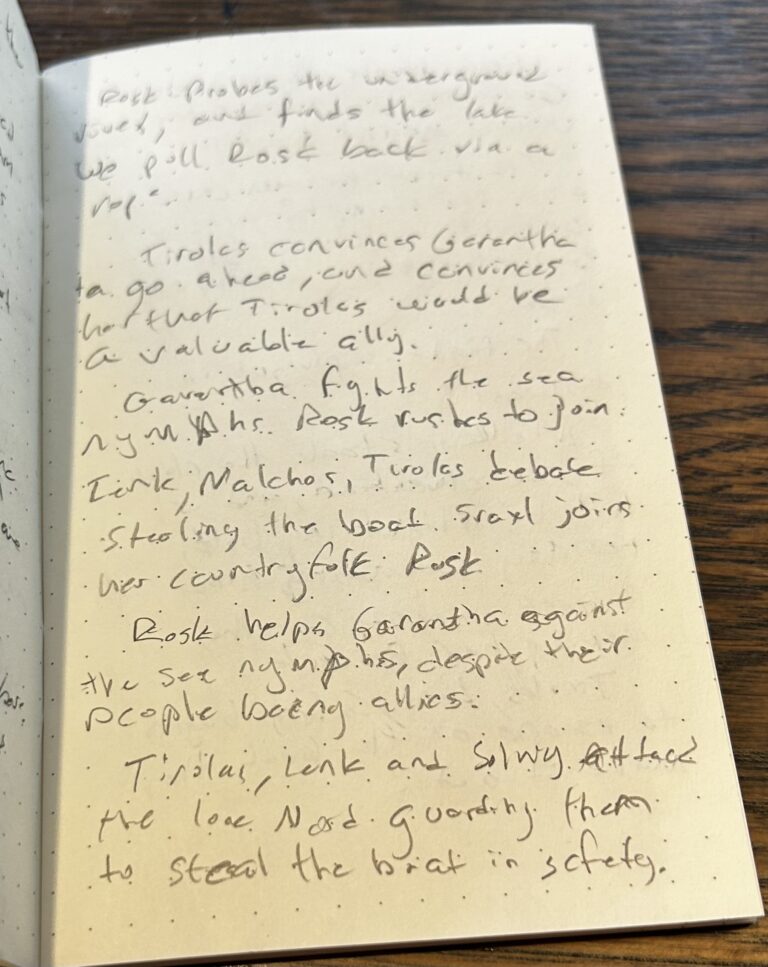 Rosk Probes the underground
river, and finds the lake.
We pull Rosk back via a
rope.
Tirolas convinces Garantha
to go ahead, and convinces
her that Tirolas would be
a valuable ally.
Garantha fights the sea
nymphs. Rosk rushes to join.
Malchos, Tirolas debate
stealing the boat. joins
her countryfolk Rosk
Rosk helps Garantha against
the sea nymphs, despite their
people being allies.
Tirolas, Lenk and Solwy Attack
the lone Nord guarding them
to steal the boat in safety.